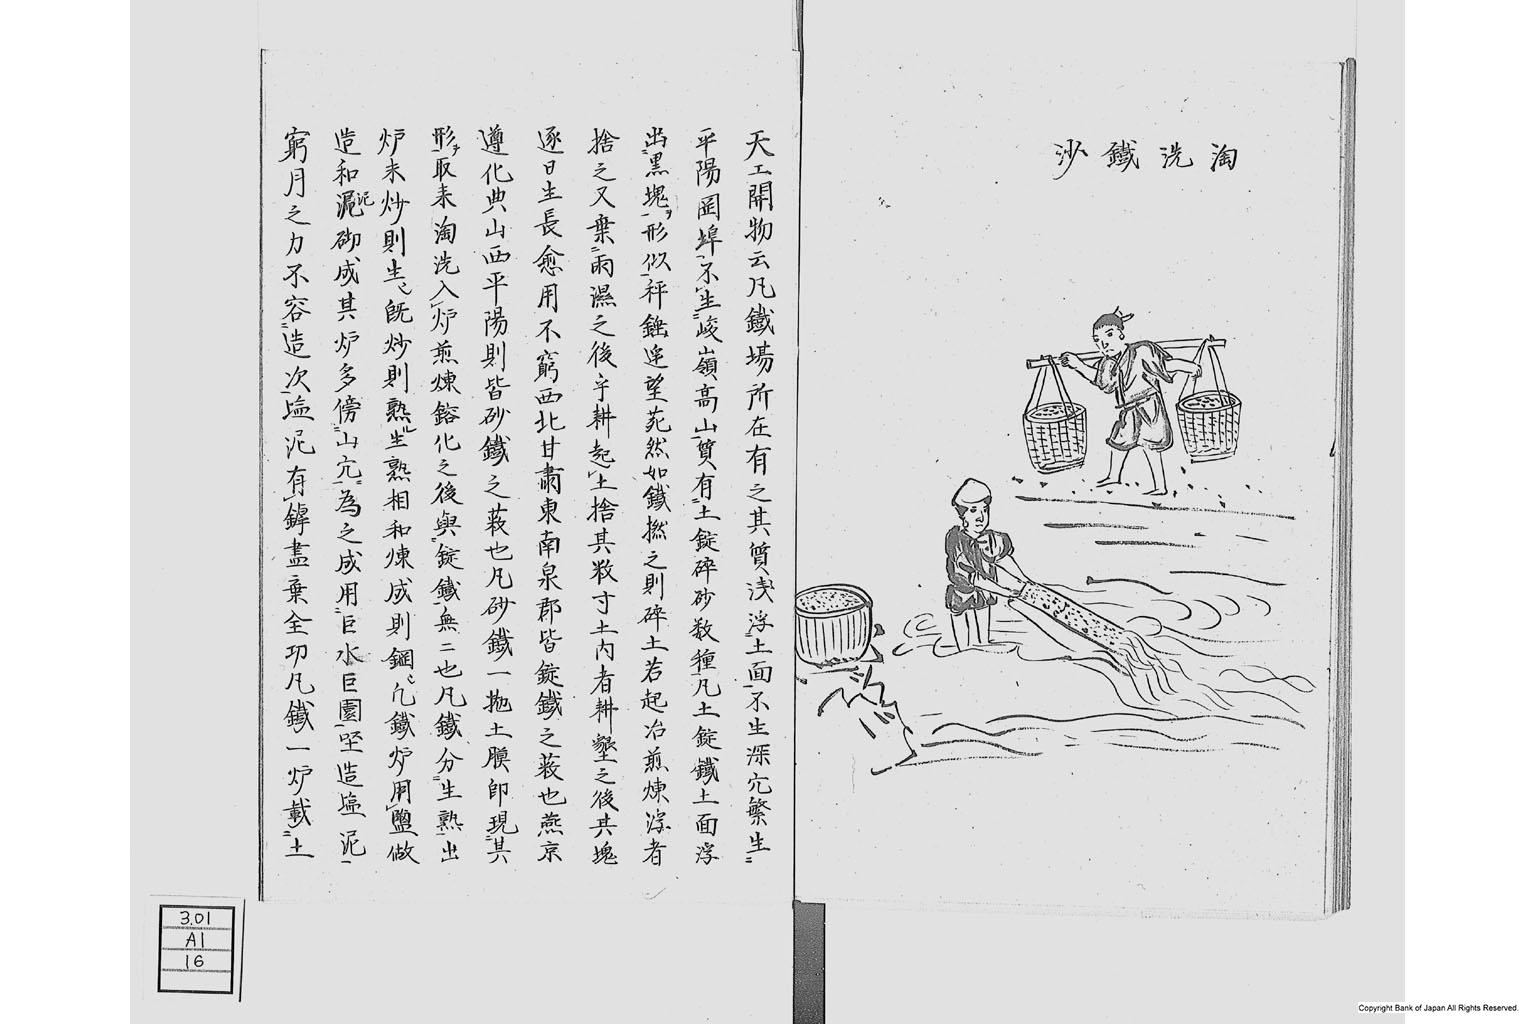 淘洗鐵沙
天工開物云凡鐵場所在有之其質浅浮土面不生深穴繁生
平陽罡埠不生峻嶺高山質有土錠碎砂数種凡土錠鐵土面浮
出黒塊形似秤錘遥望苑然如鐵撚之則碎土若起冶煎煉浮者
捨之又棄雨濕之後牛耕起土捨其数寸土内者耕墾之後其塊
逐日生長愈用不窮西北甘肅東南泉郡皆錠鐵之薮也燕京
遵化典山西平陽則皆砂鐵之薮也凡砂鐵一抛土膜即現其
形取来淘洗入炉煎煉鎔化之後與錠鐵無二也凡鐵分生熟出
炉未炒則生既炒則熟生熟相和煉成則鋼凢鐵炉用鹽做
造和泥砌成其炉多傍山穴為之成用巨水匡圍坚造塩泥
窮月之力不容造次塩泥有鏬盡棄全功凡鐵一炉載土
3.01
A1
16
Copyright Bank of Japan All Rights Reserved.